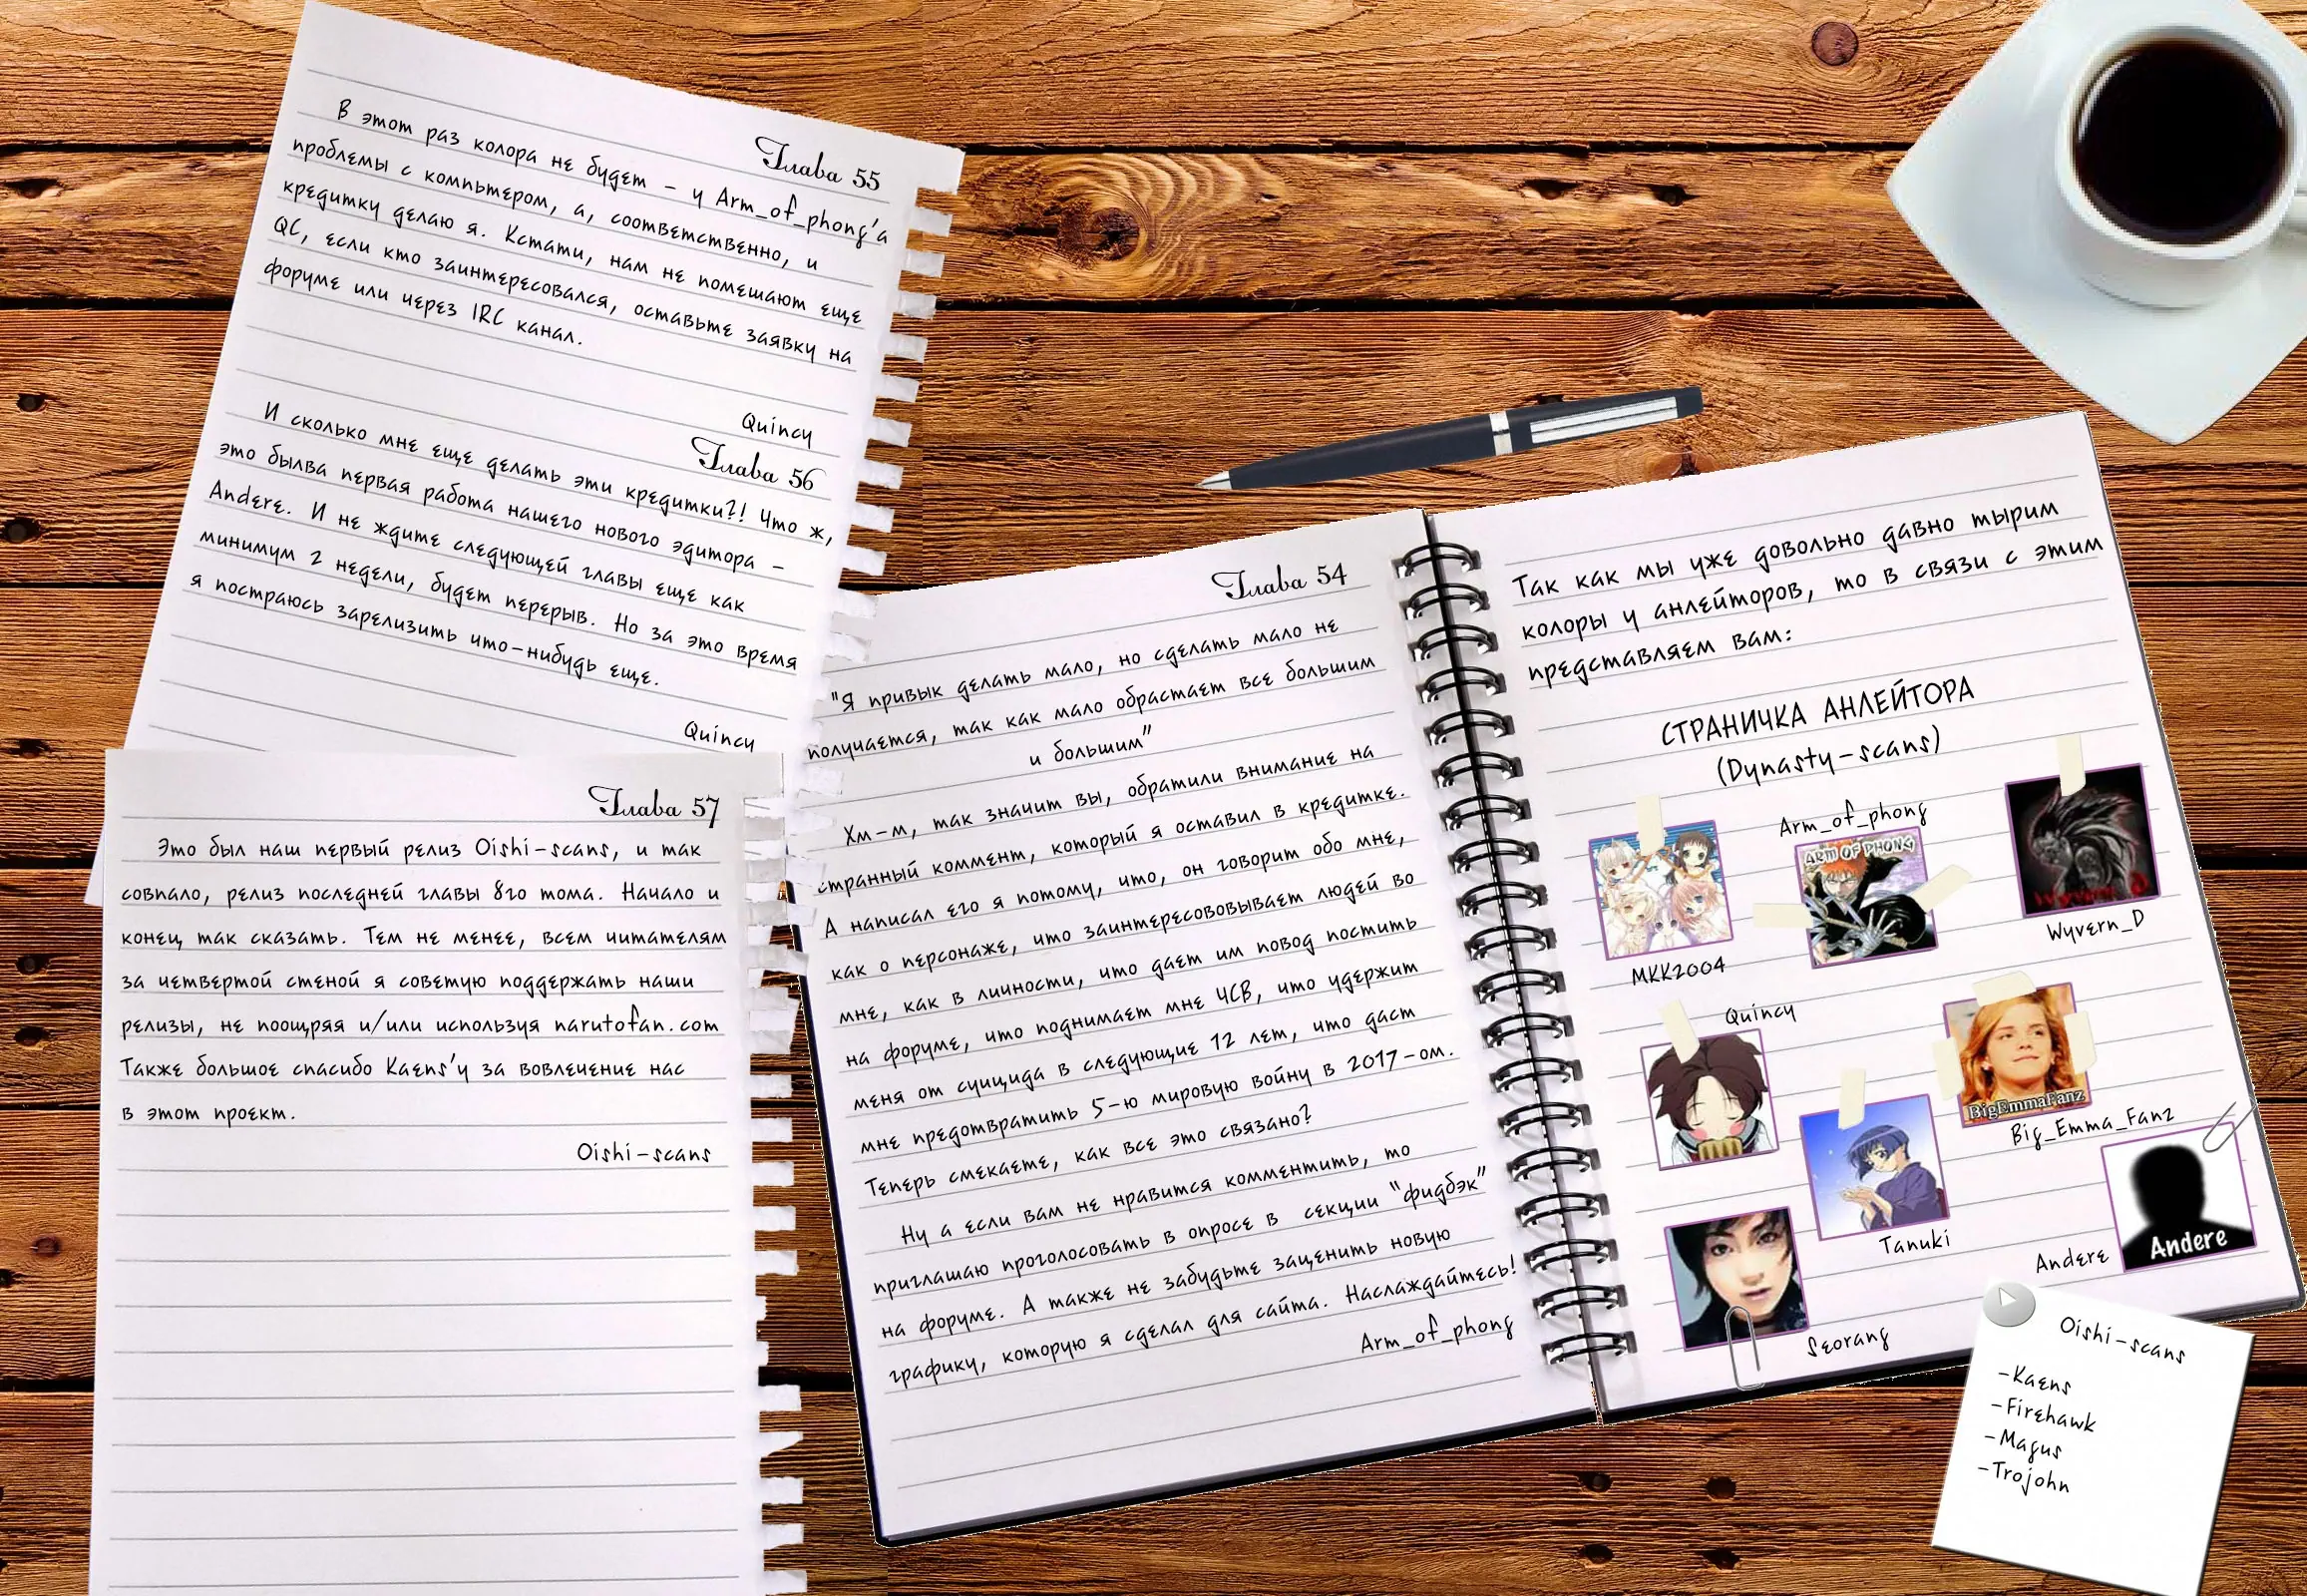 Глава 55
В этот раз колора не будет - у Arm_of_phong'а
проблемы с компьтером, а, соответственно, и
кредитку делаю я. Кстати, нам не помешают еще
QC, если кто заинтересовался, оставьте заявку на
форуме или через IRC канал.
Quincy
Глава 56
И сколько мне еще делать эти кредитки?! Что ж,
это былва первая работа нашего нового эдитора -
Andere. И не ждите следующей главы еще как
минимум 2 недели, будет перерыв. Но за это время
я постраюсь зарелизить что-нибудь еще.
Quincy
Глава 57
Это был наш первый релиз Oishi-scans, и так
совпало, релиз последней главы 8го тома. Начало и
конец, так сказать. Тем не менее, всем читателям
за четвертой стеной я советую поддержать наши
релизы, не поощряя и/или используя narutofan.com
Также большое спасибо Kaens'у за вовлечение нас
в этот проект.
Oishi-scans
Глава 54
"Я привык делать мало, но сделать мало не
получается, так как мало обрастает все большим
и большим"
Хм-м, так значит вы, обратили внимание на
странный коммент, который я оставил в кредитке.
А написал его я потому, что, он говорит обо мне,
как о персонаже, что заинтересововывает людей во
мне, как в личности, что дает им повод постить
на форуме, что поднимает мне ЧСВ, что удержит
меня от суицида в следующие 12 лет, что даст
мне предотвратить 5-ю мировую войну в 2017-ом.
Теперь смекаете, как все это связано?
Ну а если вам не нравится комментить, то
приглашаю проголосовать в опросе в секции "фидбэк"
на форуме. А также не забудьте заценить новую
графику, которую я сделал для сайта. Наслаждайтесь!
Arm_of_phong
Так как мы уже довольно давно тырим
колоры у анлейторов, то в связи с этим
представляем вам:
СТРАНИЧКА АНЛЕЙТОРА
(Dynasty-scans)
MKK2004
Arm_of_phong
ARM OF PHONG
Wyvern D
Wyvern_D
Quincy
BigEmmaFanz
Big_Emma_Fanz
Tanuki
Andere
Andere
Seorang
Oishi-scans
-Kaens
-Firehawk
-Magus
-Trojohn